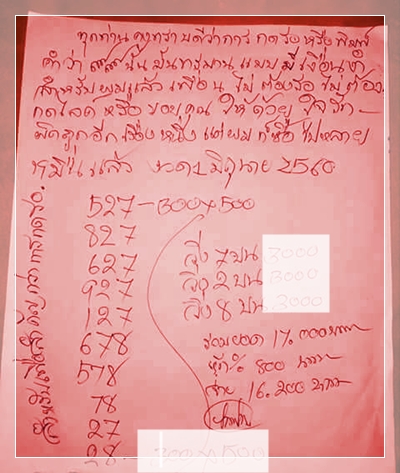 ทุกท่านคงทราบดีว่าการ กดรอ หรือพิมพ์
คำว่า นั้นมันทรมาน แบบมีเงื่อนไข
สำหรับผมแล้ว เพื่อน ไม่ต้องรอ ไม่ต้อง
กดไลค์ หรือ ขอบคุณ ให้ด้วย ใจรัก
ผิดถูกอีก เรื่องหนึ่ง แต่ผม ก็ซื้อ ไปหลาย
แล้ว งวด 1 มิถุนายน 2560
527 - 300 x 500
827
627 วิ่ง 7 บน 3000
927 วิ่ง 2 บน 3000
127 วิ่ง 8 บน 3000
678 รวมยอด 17.000 บาท
578 หัก 800 บาท
78 จ่าย 16.200 บาท
27
28 - 300 x 500